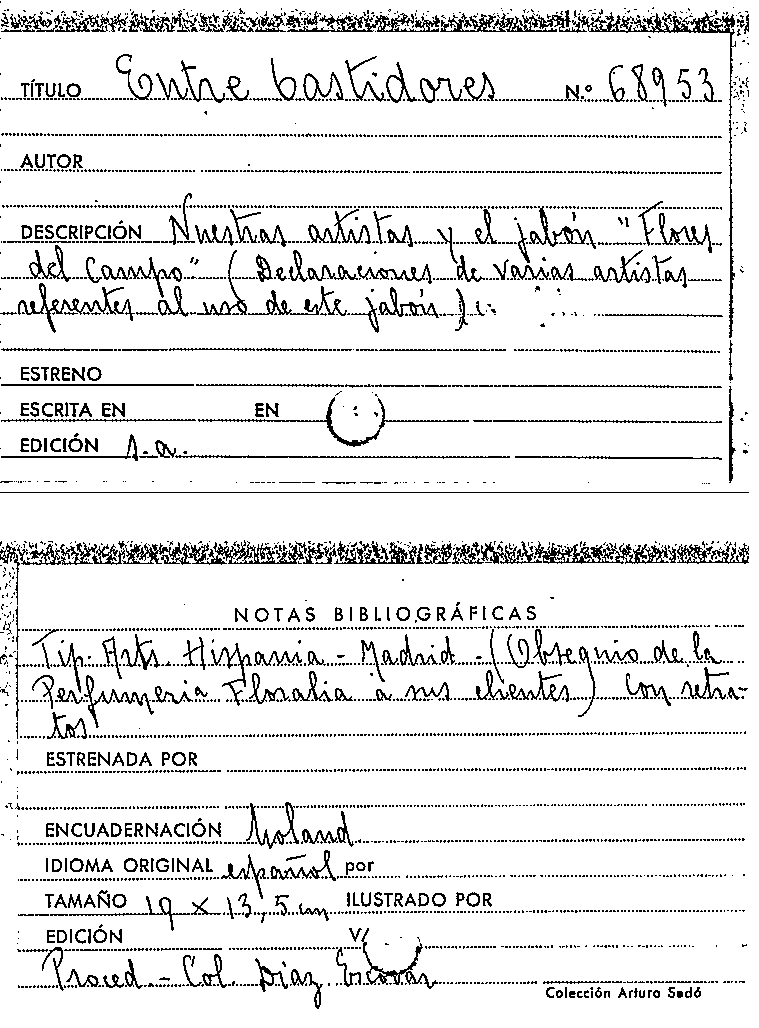 TÍTULO Entre bastidores N.º 68953
AUTOR
DESCRIPCIÓN Nuestras artistas y el jabón "Flores
del Campo" (Declaraciones de varias artistas
referentes al uso de este jabón)
ESTRENO
ESCRITA EN EN
EDICIÓN s.a.
NOTAS BIBLIOGRÁFICAS
Tip. Arts Hispania - Madrid - (Obsequio de la
Perfumeria Floralia a sus clientes) Con retra-
tos
ESTRENADA POR
ENCUADERNACIÓN Holand
IDIOMA ORIGINAL español por
TAMAÑO 19 x 13,5 cm ILUSTRADO POR
EDICIÓN V/
Proced. - Col. Díaz Escovar
Colección Arturo Sedó